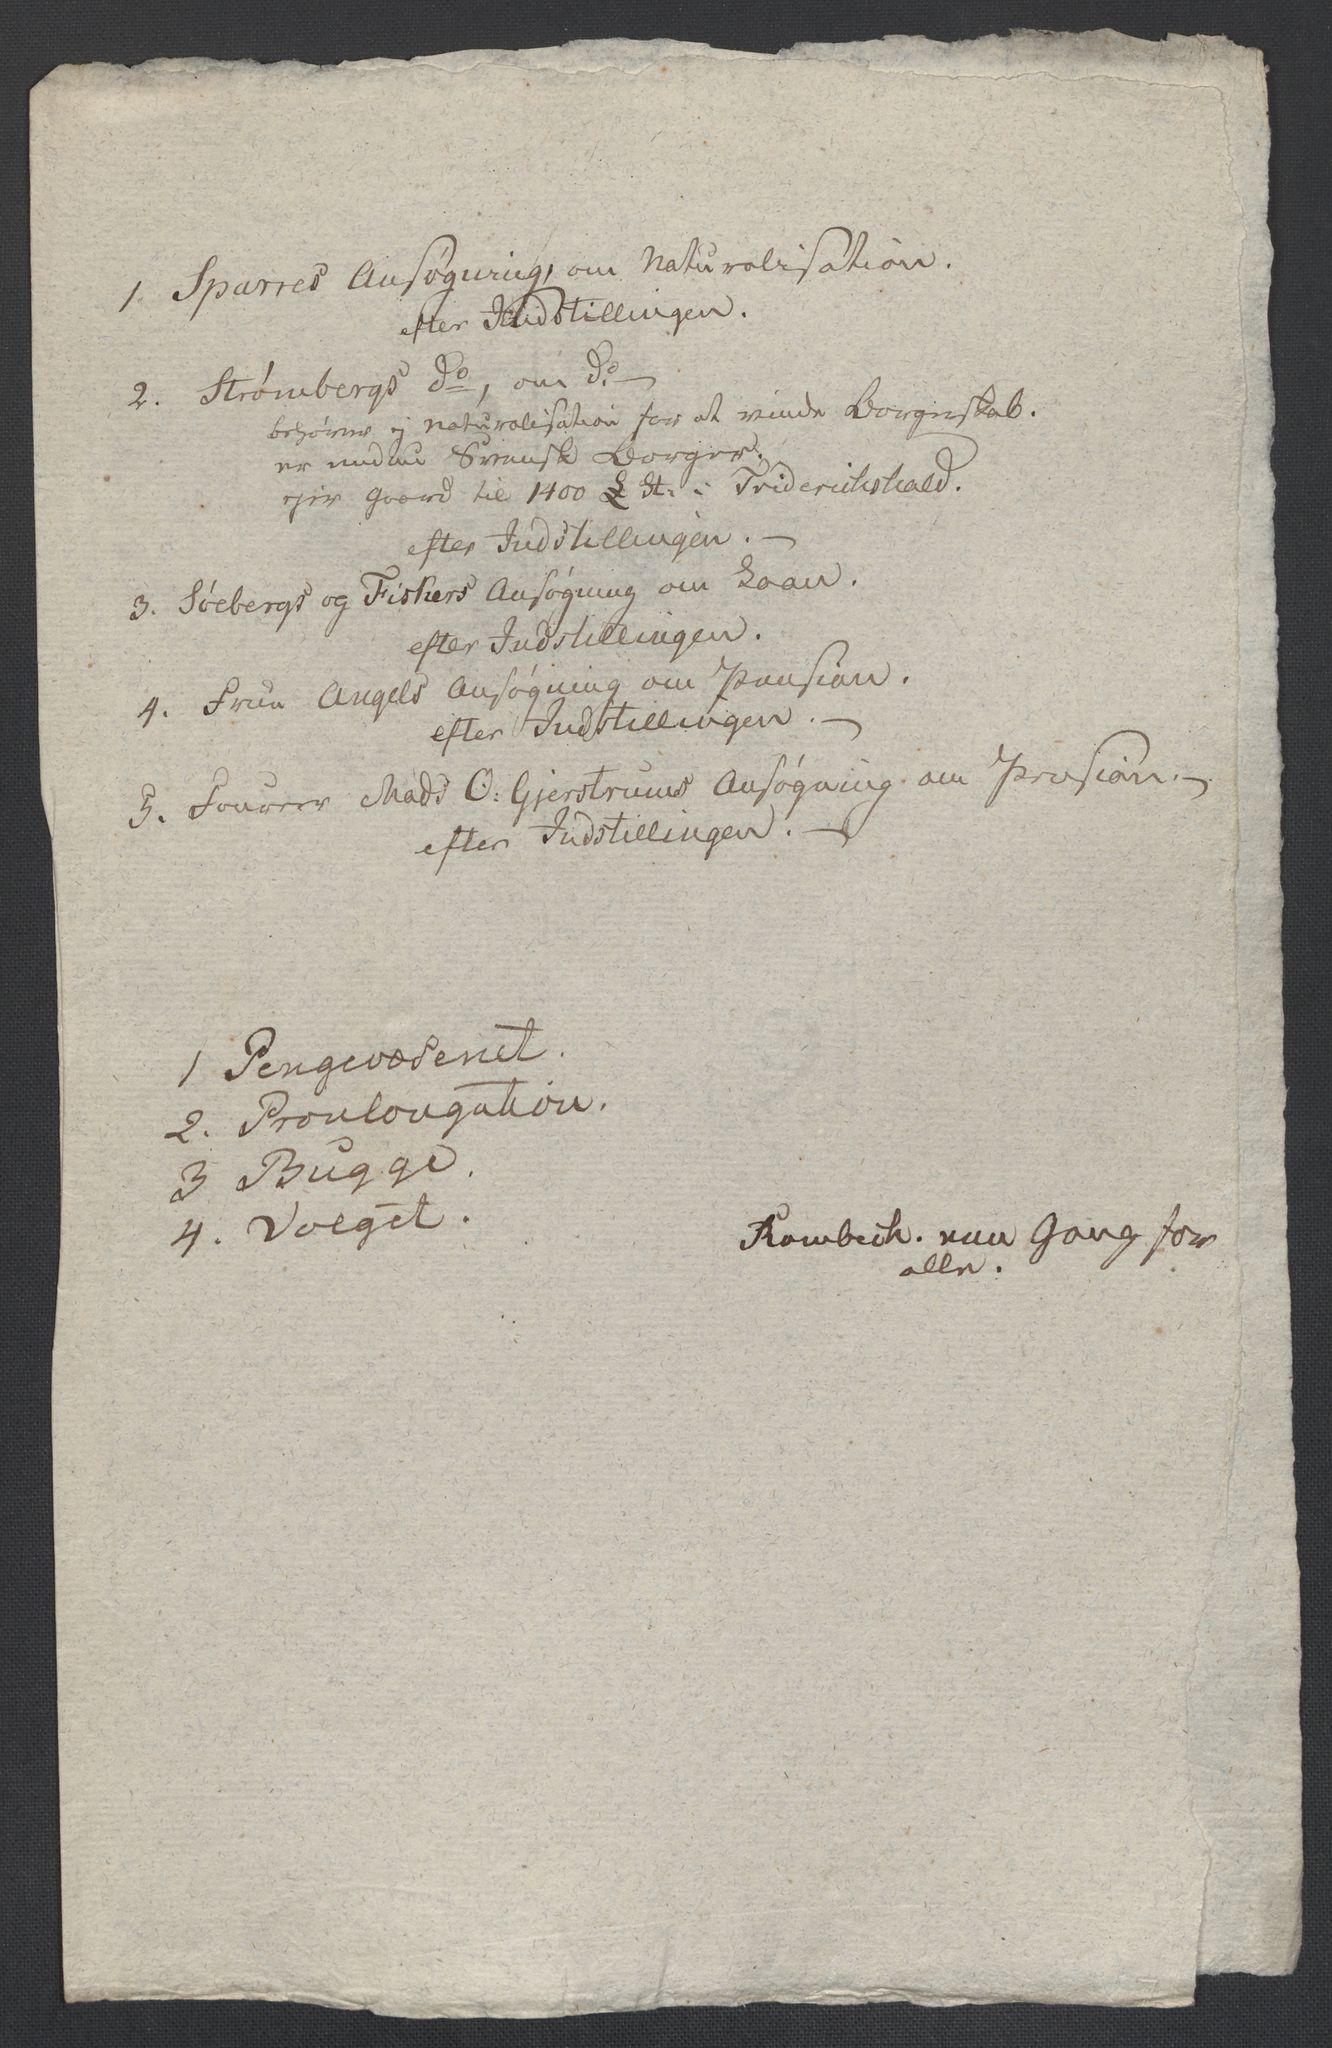 1 Sparres Ansøgning, om Naturalisation.
efter Indstillingen.
2. Strømbergs do, om do
behøves ej Naturalisation for at vinde Borgerskab.
er endnu Svensk Borger.
ejer Gaard til 1400 i Friderichshald.
efter Indstillingen.
3. Søebergs og Fiskers Ansøgning om Laan.
efter Indstillingen.
4. Frue Angels Ansøgning om Pension.
efter Indstillingen.
5. Fourer Mads O: Gjerstrums Ansøgning om Pension.
efter Indstillingen.
1 Pengevæsenet.
2. Pronlongation.
3 Bugge.
4. Valget.
Rambech. een Gang for
alle.